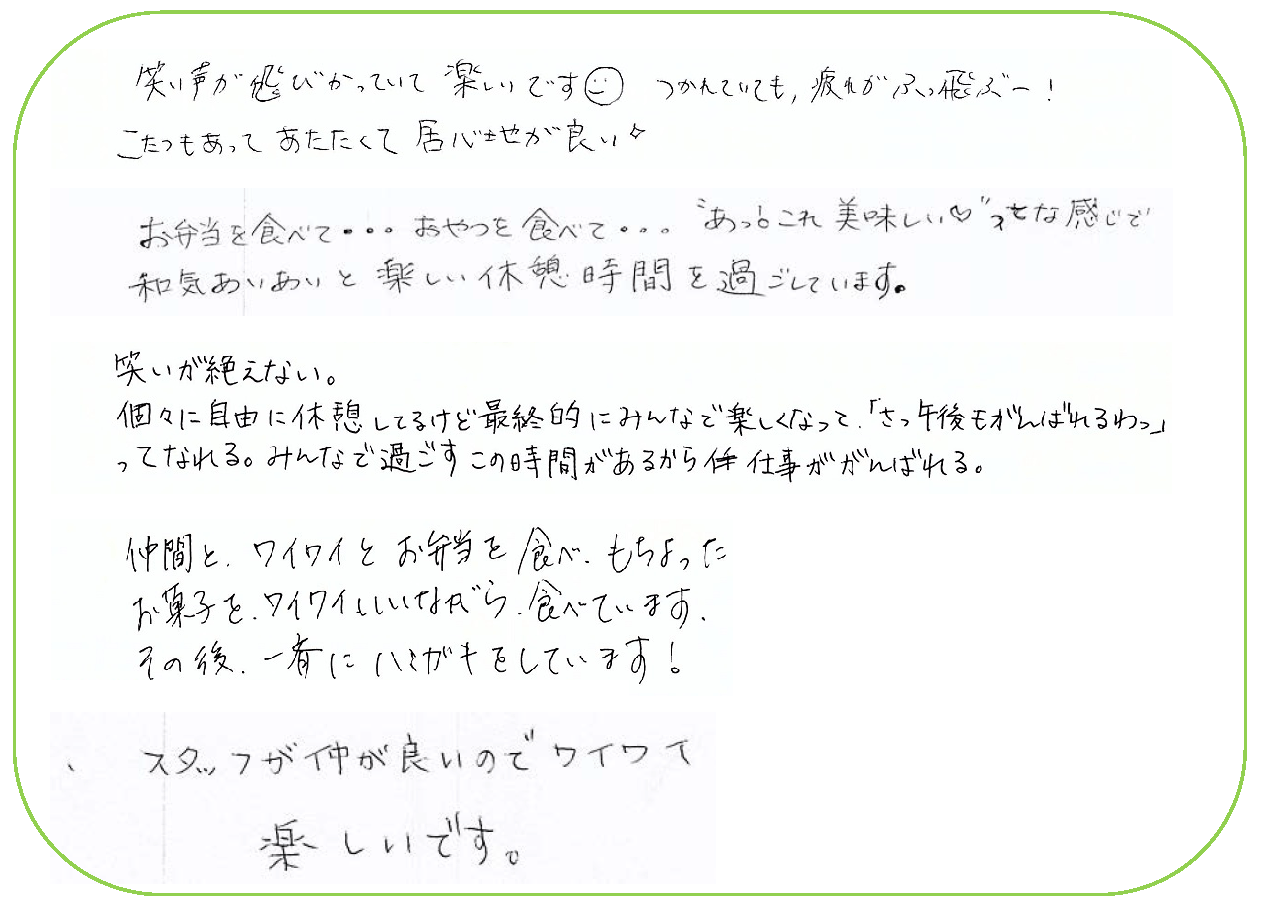 笑い声が飛びかっていて 楽しいです☺ つかれていても, 疲れがふっ飛ぶー!
こたつもあって あたたくて 居心地が良い✧
お弁当を食べて・・・おやつを食べて・・・ “あっ!これ 美味しい♡”って な感じで
和気あいあいと 楽しい休憩時間を過ごしています。
笑いが絶えない。
個々に自由に休憩してるけど最終的にみんなで楽しくなって、「さっ午後もがんばれるわっ」
ってなれる。みんなで過ごすこの時間があるから 仕事ががんばれる。
仲間と、ワイワイとお弁当を食べ、もちよった
お菓子を、ワイワイいいながら、食べています、
その後、一斉にハミガキをしています!
、 スタッフが仲が良いのでワイワイ
楽しいです。